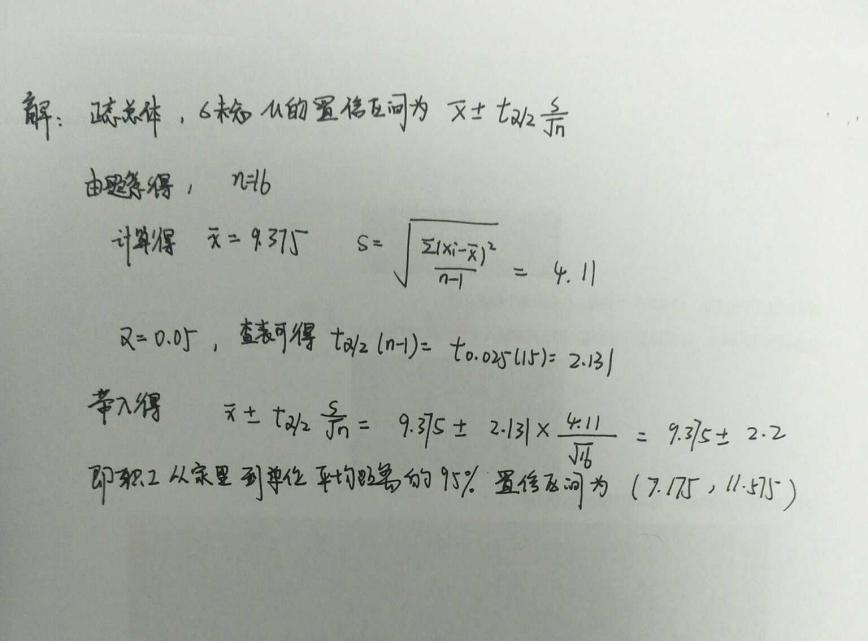 解：正态总体，σ未知 μ的置信区间为 x̄ ± t_{α/2} \frac{s}{\sqrt{n}}
由题意得， n=16
计算得 x̄ = 9.375 s = \sqrt{\frac{Σ(xi-x̄)^2}{n-1}} = 4.11
α=0.05，查表可得 t_{α/2}(n-1)= t_{0.025}(15)= 2.131
带入得 x̄ ± t_{α/2} \frac{s}{\sqrt{n}} = 9.375 ± 2.131 × \frac{4.11}{\sqrt{16}} = 9.375 ± 2.2
即职工从家里到单位平均距离的95% 置信区间为 (7.175，11.575)